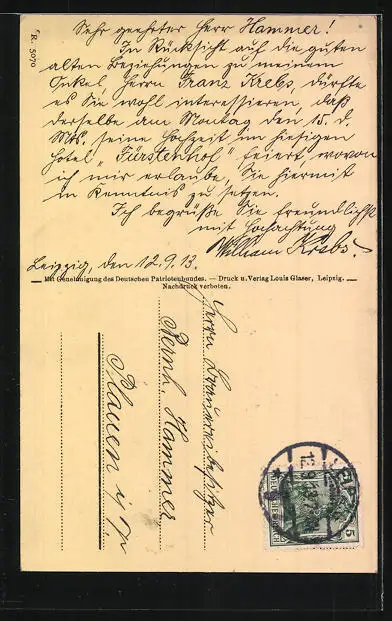 R. 5070
Sehr geehrter Herr Hammer!
In Rücksicht auf die guten
alten Beziehungen zu meinem
Onkel, Herrn Franz Krebs, dürfte
es Sie wohl interessieren, daß
derselbe am Montag den 15. d.
Mts. seine Hochzeit im hiesigen
Hotel „Fürstenhof" feiert, wovon
ich mir erlaube, Sie hiermit
in Kenntnis zu setzen.
Ich begrüße Sie freundlichst
mit Hochachtung
William Krebs.
Leipzig, den 12.9.13.
Mit Genehmigung des Deutschen Patriotenbundes. — Druck u. Verlag Louis Glaser, Leipzig.
Nachdruck verboten.
Herrn Brauereibesitzer
Bernh. Hammer
Plauen i/V
LEIPZIG
12.9.13
5